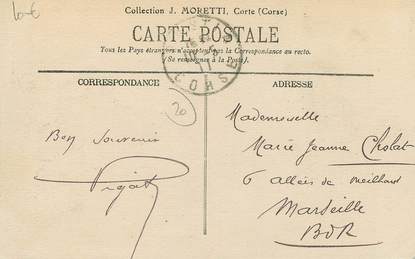 10€
Collection J. MORETTI, Corte (Corse)
CARTE POSTALE
Tous les Pays étrangers n'acceptent pas la Correspondance au recto.
(Se renseigner à la Poste).
CORSE
CORRESPONDANCE
ADRESSE
20
Bon Souvenir
Mademoiselle
Marie Jeanne Cholat
6 allées de Meilhan
Marseille
BDR